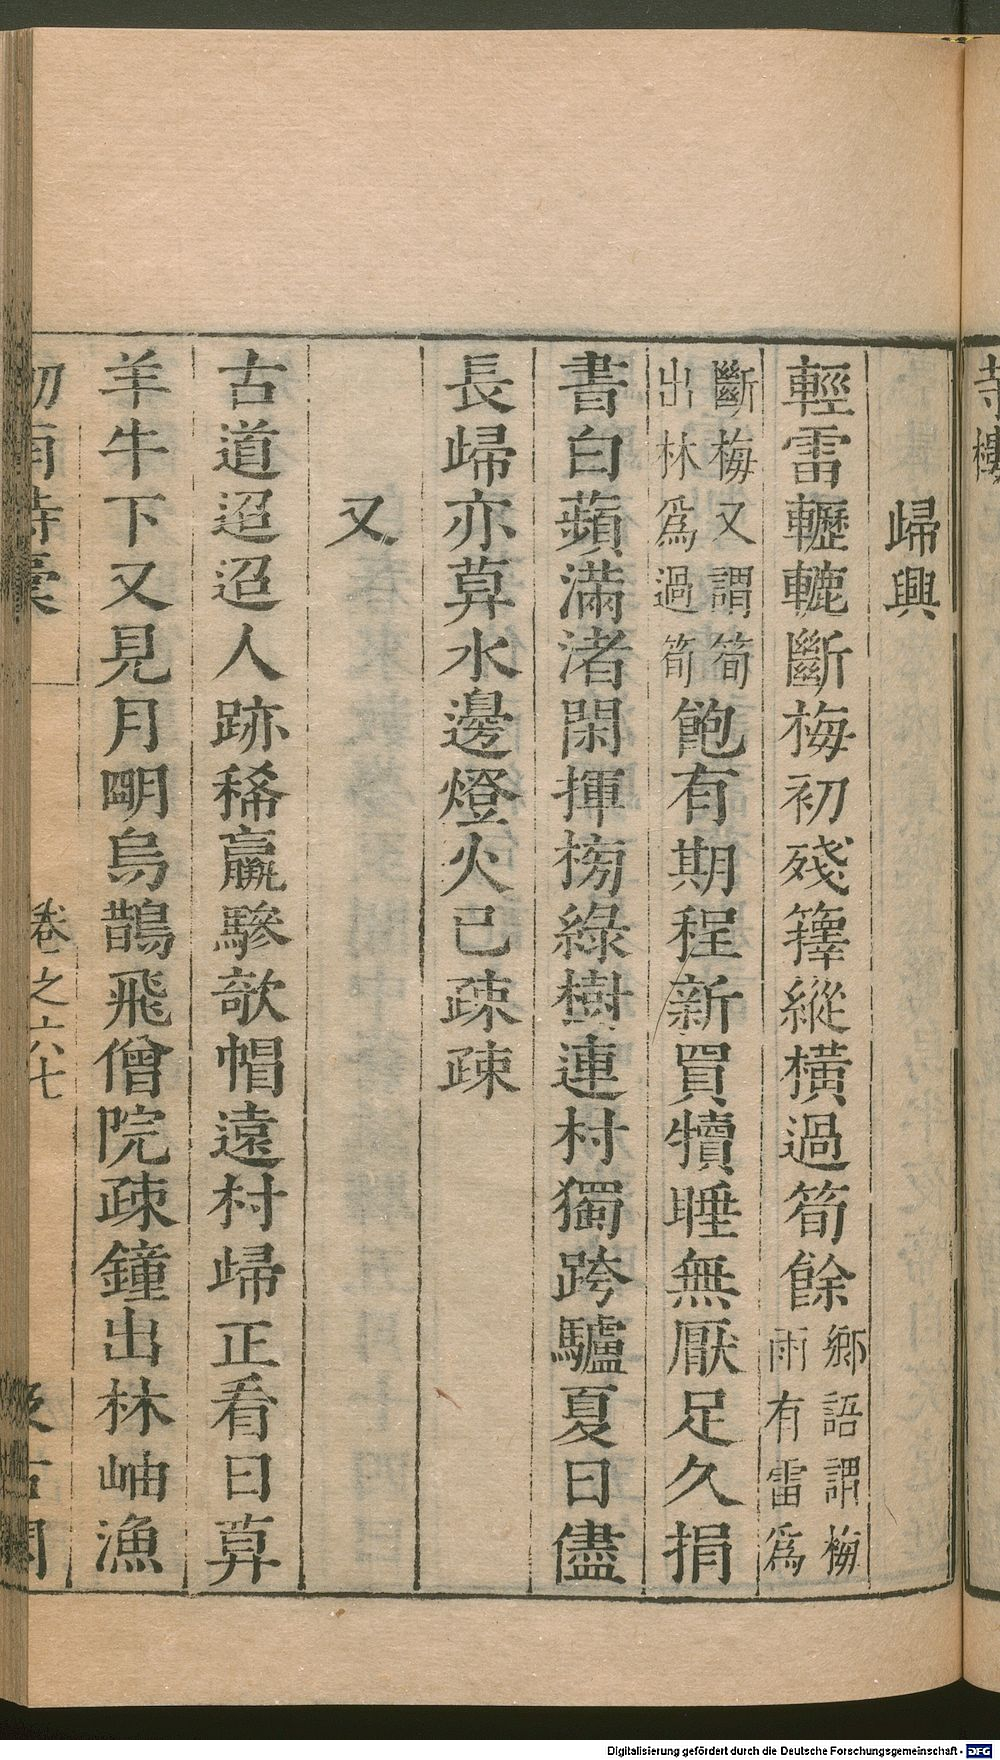 寺樓
歸興
輕雷轣轆斷梅初殘籜縱横過筍餘鄉語謂梅雨有雷爲
斷梅又謂筍出林爲過筍飽有期程新買犢睡無厭足久捐
書白蘋滿渚閑揮榜綠樹連村獨跨驢夏日儘
長歸亦莫水邊燈火已疎疎
又
古道迢迢人跡稀羸驂欹帽遠村歸正看日莫
羊牛下又見月明烏鵲飛僧院疎鐘出林岫漁
卷之六七
Digitalisierung gefördert durch die Deutsche Forschungsgemeinschaft - DFG